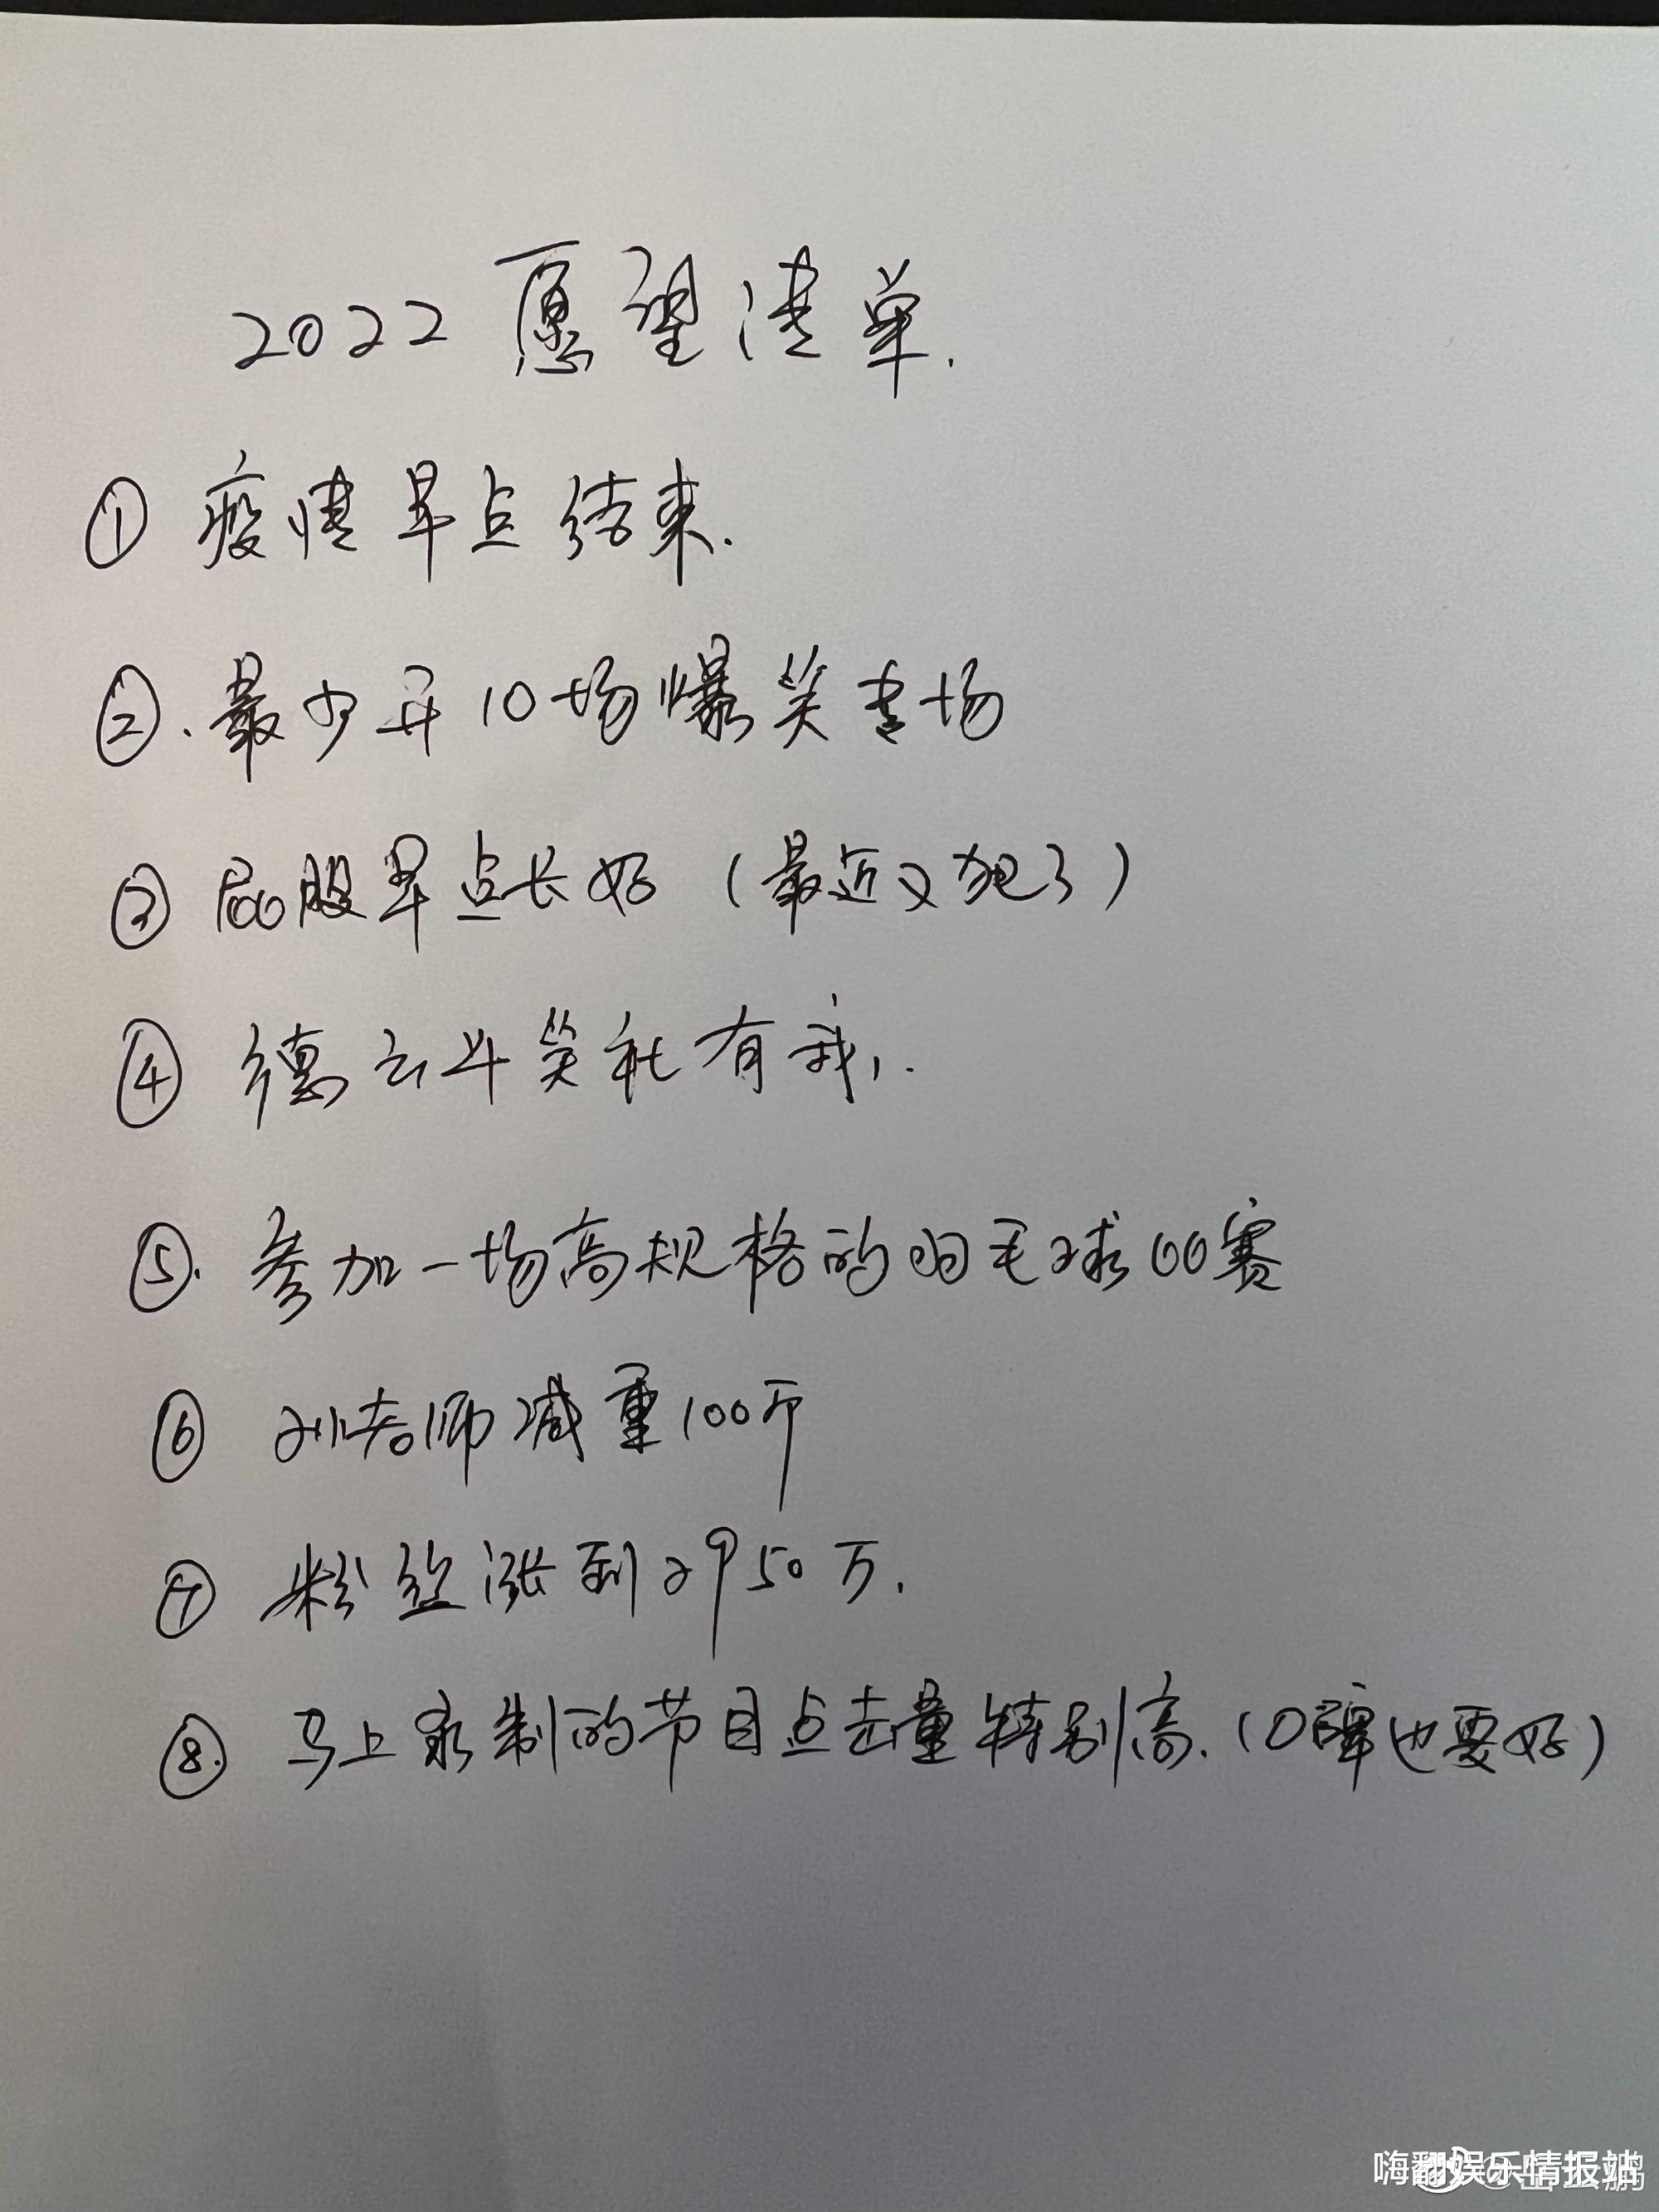 2022愿望清单.
① 疫情早点结束.
②.最少开10场爆笑专场
③ 屁股早点长好（最近又犯了）
④ 德云斗笑社有我,.
⑤.参加一场高规格的羽毛球比赛
⑥ 孙老师减重100斤
⑦ 粉丝涨到2950万.
⑧.马上录制的节目点击量特别高.（口碑也要好）
嗨翻娱乐情报站